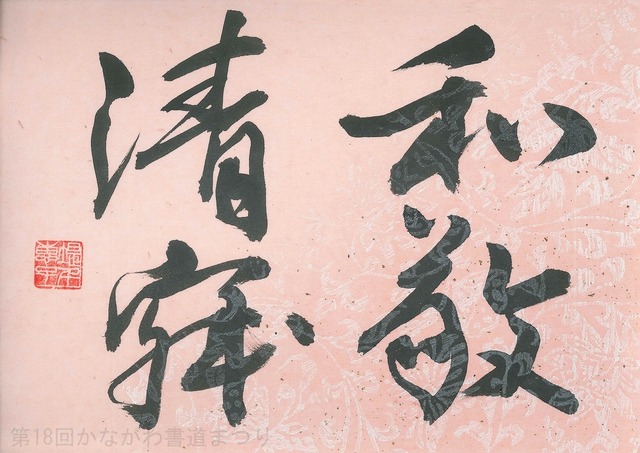 和敬
清寂
第18回かながわ書道まつり